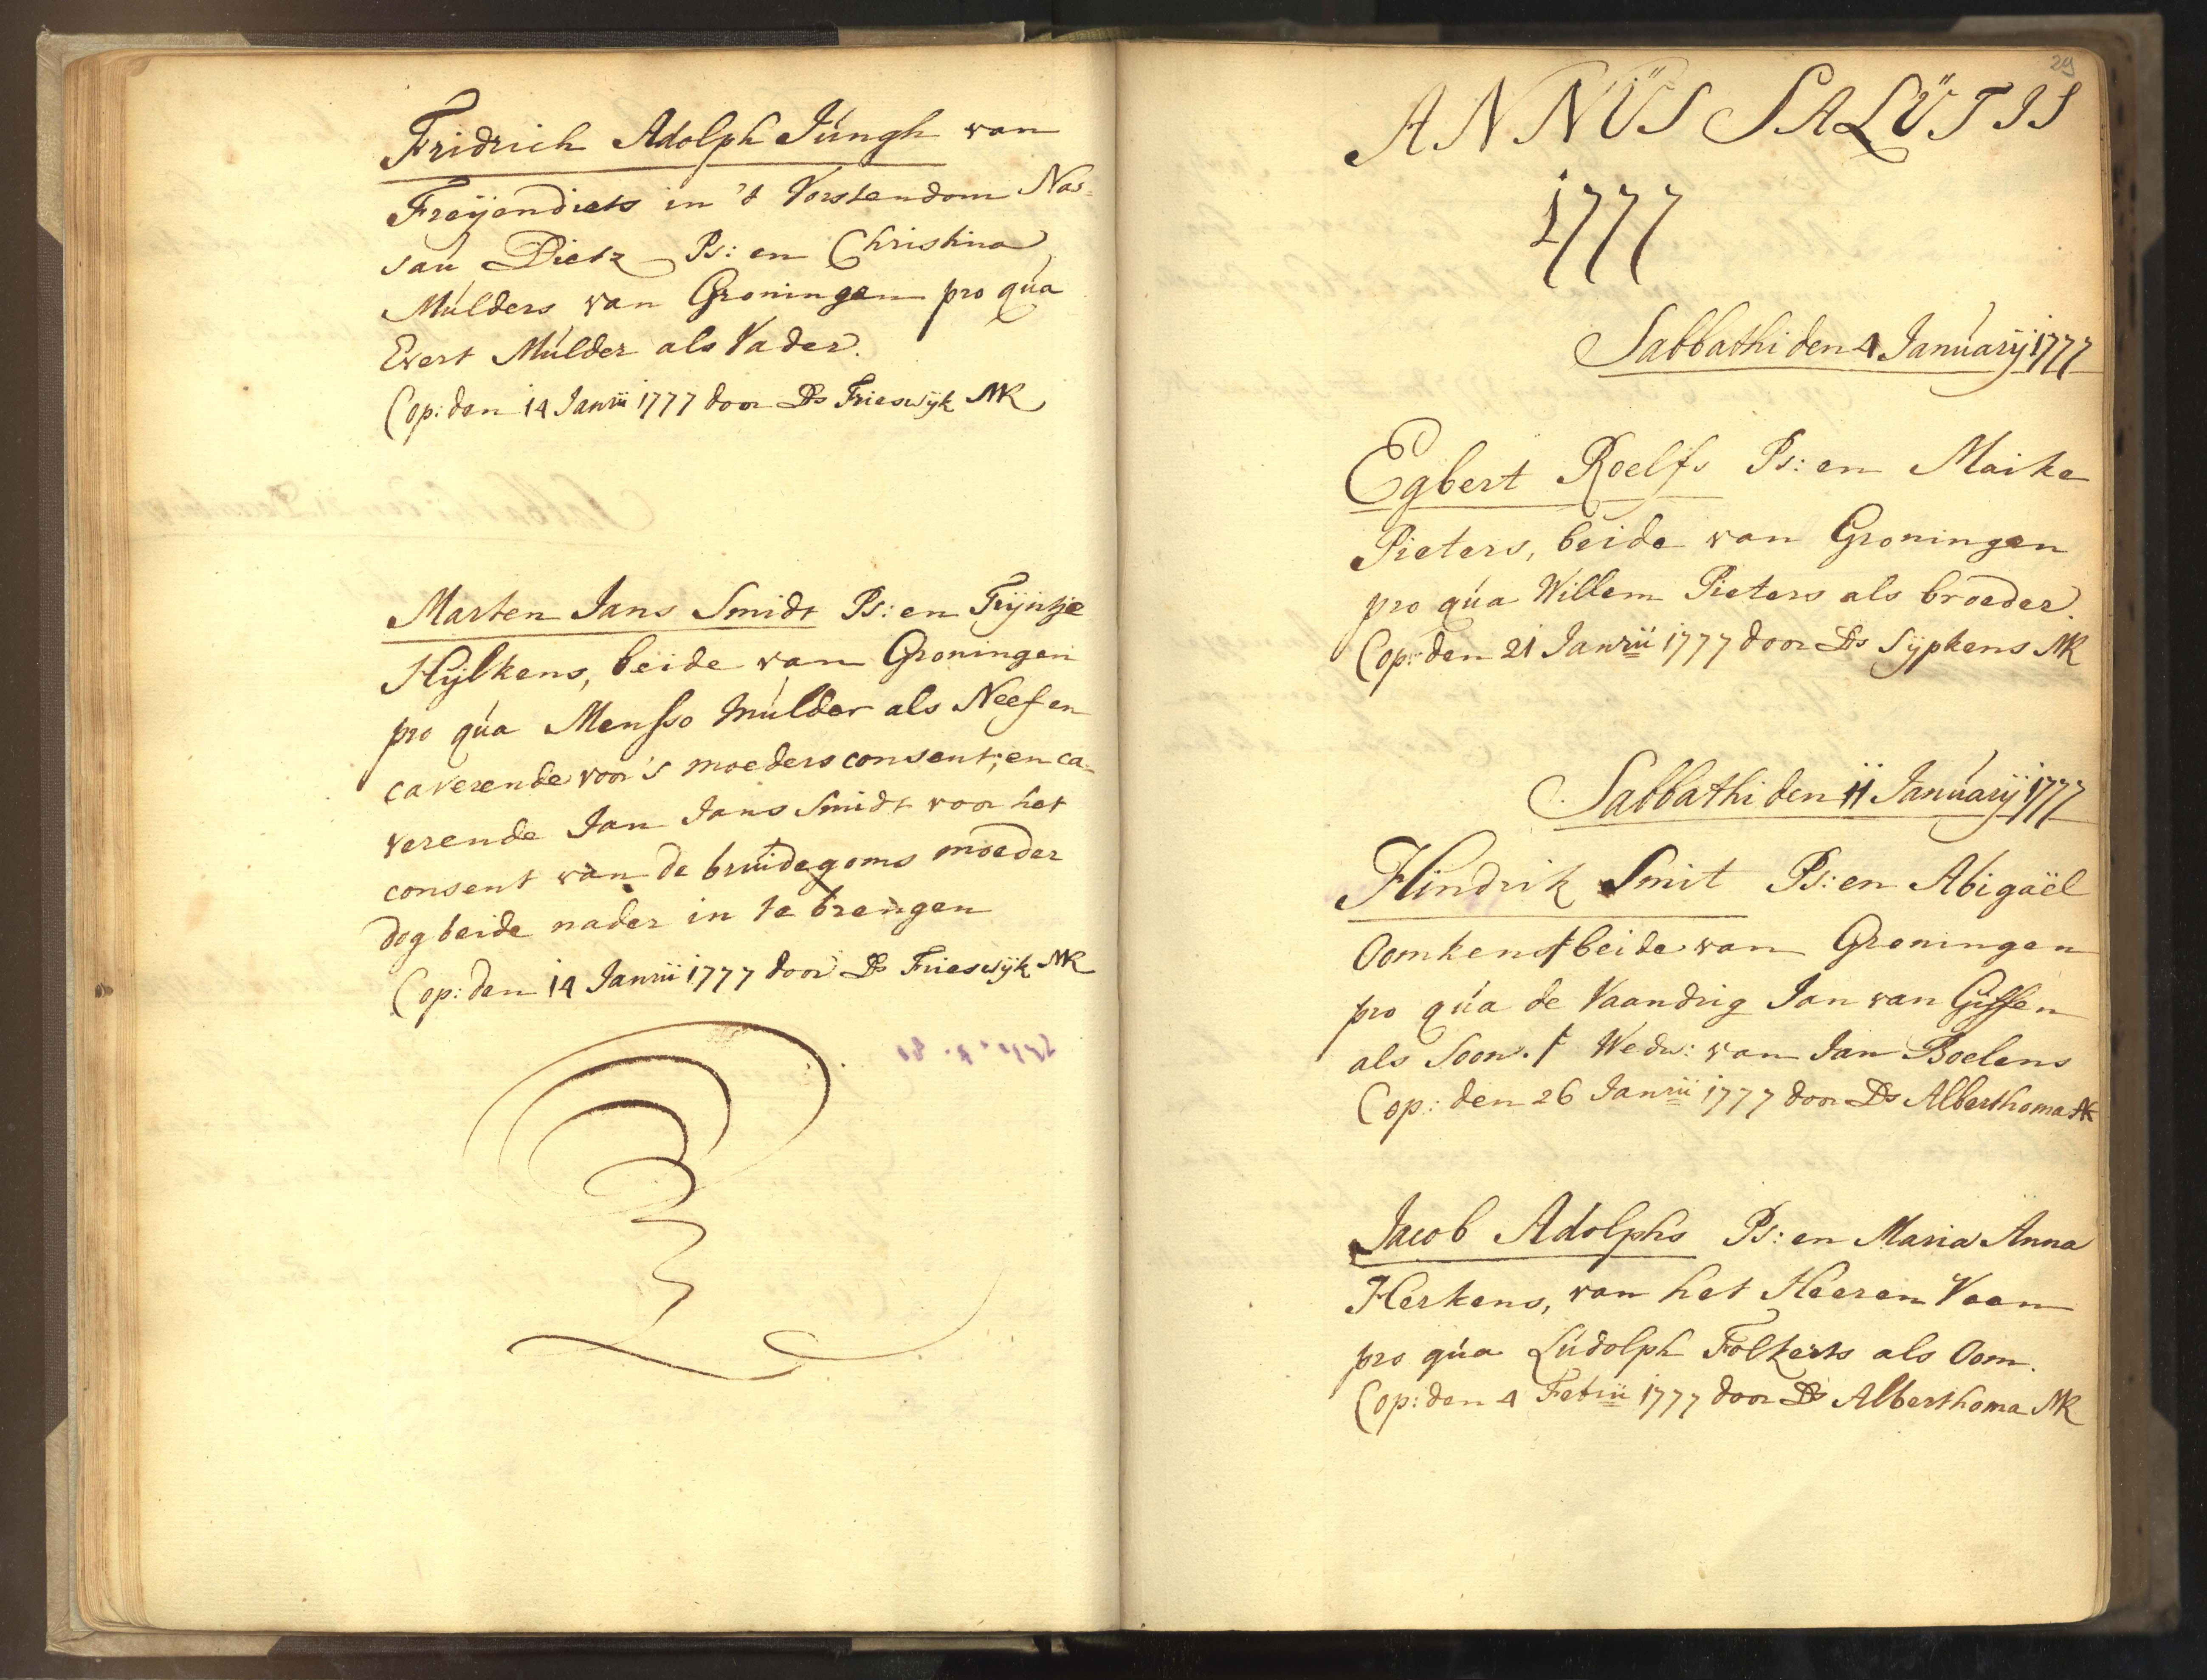 Fridrich Adolph Jungh van
Freÿendiets in 't Vorstendom Nas-
sau Dietz Ps: en Christina
Mulders van Groningen pro qua
Evert Mulder als Vader.
Cop: den 14 Janrii 1777 door Ds Frieswijk MK
Marten Jans Smidt Ps: en Trÿntje
Hylkens, beide van Groningen
pro qua Mensso Mulder als Neef en
caverende voor 's moeders consent; en ca-
verende Jan Jans Smidt voor het
consent van de bruidegoms moeder
dog beide nader in te brengen
Cop: den 14 Janrii 1777 door Ds Frieswijk MK
29
ANNUS SALUTIS
1777
Sabbathi den 4 Januarij 1777
Egbert Roelfs Ps: en Maike
Pieters, beide van Groningen
pro qua Willem Pieters als broeder.
Cop: den 21 Janrii 1777 door Ds Sypkens MK
Sabbathi den 11 Januarij 1777
Hindrik Smit Ps: en Abigaël
Oomkens ⨍ beide van Groningen
pro qua de Vaandrig Jan van Giffen
als Soon. ⨍ Wedw: van Jan Boelens
Cop: den 26 Janrii 1777 door Ds Alberthoma MK
Jacob Adolphs Ps: en Maria Anna
Herkens, van het Heeren Veen
pro qua Ludolph Folkerts als Oom.
Cop: den 4 Febrii 1777 door Ds Alberthoma MK